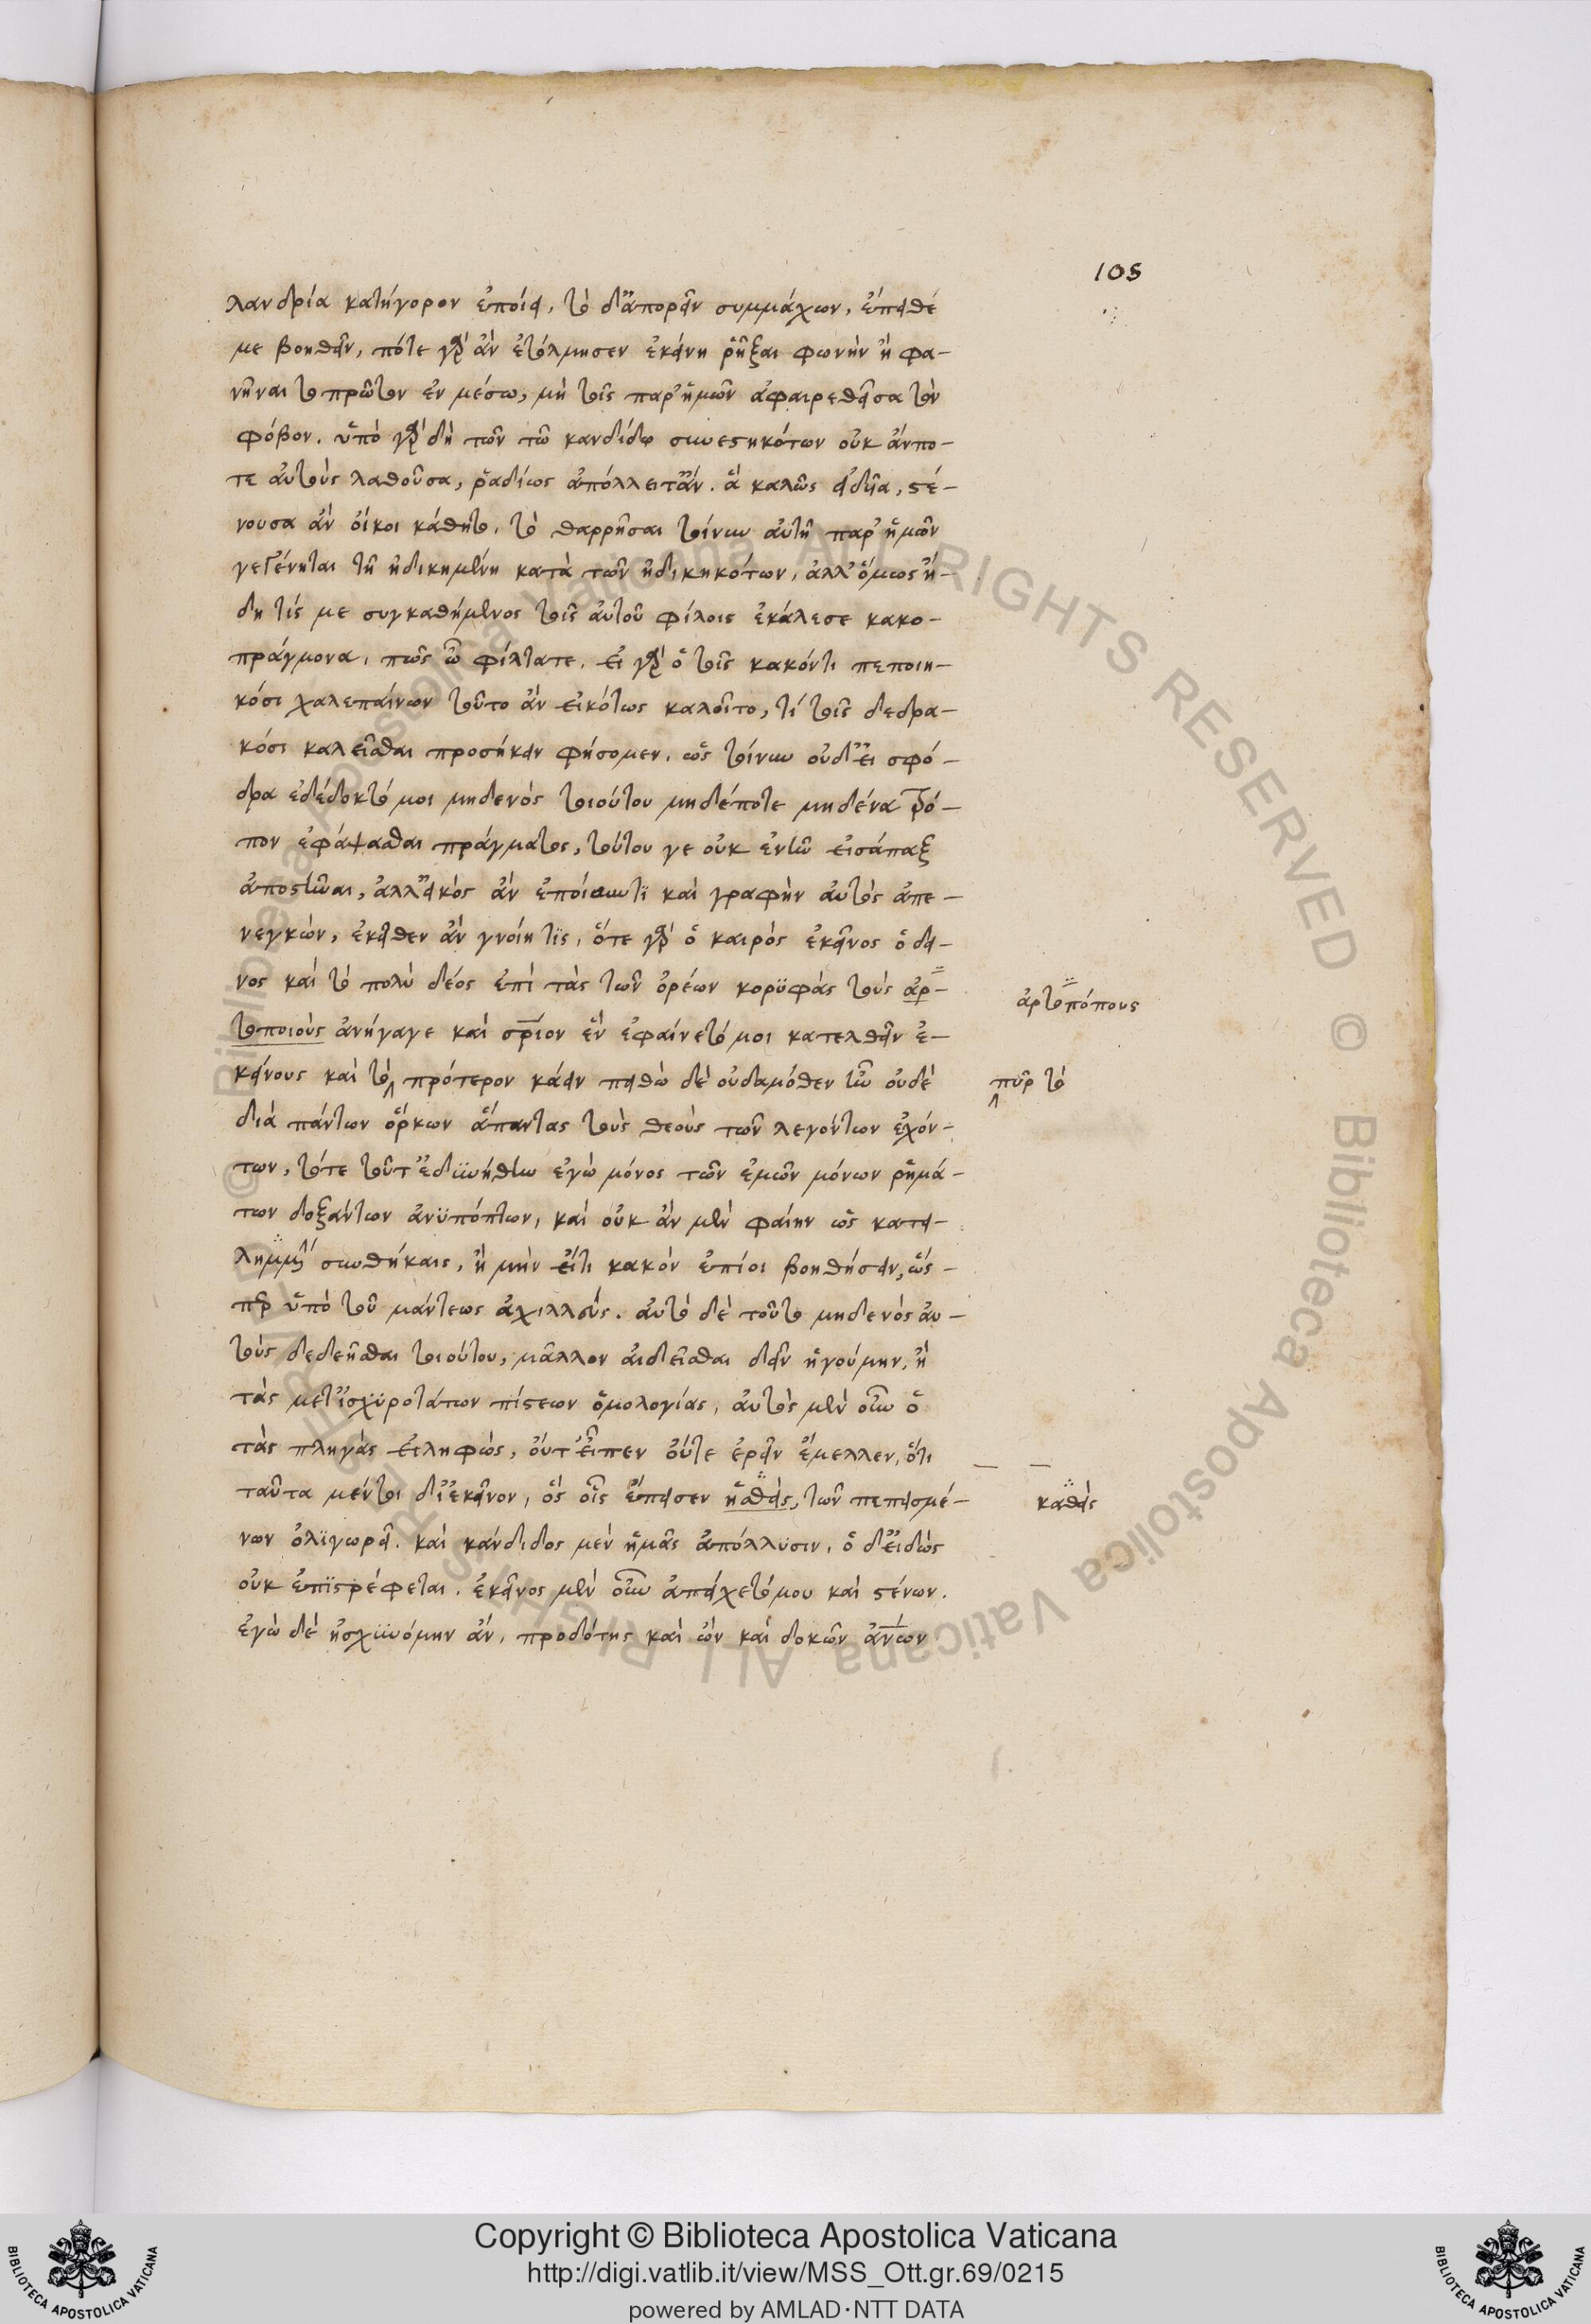 105
λανδρία κατήγορον ἐποίει, τὸ δ' ἀπορεῖν συμμάχων, ἔπειθέ
με βοηθεῖν, πότε γὰρ ἂν ἐτόλμησεν ἐκείνη ῥῆξαι φωνὴν ἢ φα-
νῆναι τοπρῶτον ἐν μέσω, μὴ τοῖς παρ' ἡμῶν ἀφαιρεθεῖσα τὸν
φόβον. ὑπὸ γὰρ δὴ τῶν τῶ κανδίδω συνεστηκότων οὐκ ἄνπο-
τε αὐτοὺς λαθοῦσα, ῥαδίως ἀπόλλειτ' ἄν. ἃ καλῶς εἰδυῖα, στέ-
νουσα ἂν οἴκοι κάθητο. τὸ θαρρῆσαι τοίνυν αὐτῆ παρ' ἡμῶν
γεγένηται τῆ ἠδικημένη κατὰ τῶν ἠδικηκότων, ἀλλ' ὅμως ἤ-
δη τίς με συγκαθήμενος τοῖς αὐτοῦ φίλοις ἐκάλεσε κακο-
πράγμονα. πῶς ὦ φίλτατε. εἰ γὰρ ὁ τοῖς κακόντι πεποιη-
κόσι χαλεπαίνων τοῦτο ἂν εἰκότως καλοῖτο, τί τοῖς δεδρα-
κόσι καλεῖσθαι προσήκειν φήσομεν. ὡς τοίνυν οὐδ' εἰ σφό-
δρα ἐδέδοκτό μοι μηδενὸς τοιούτου μηδέποτε μηδένα τρό-
πον ἐφάψασθαι πράγματος, τούτου γε οὐκ ἐνῶ εἰσάπαξ
ἀποστῶναι, ἀλλ' εἰκὸς ἂν ἐποίουντι καὶ γραφὴν αὐτὸς ἀπε-
νεγκών, ἐκεῖθεν ἂν γνοίη τὶς, ὅτε γὰρ ὁ καιρὸς ἐκεῖνος ὁ δει-
νος καὶ τὸ πολὺ δέος ἐπὶ τὰς τῶν ὀρέων κορϋφὰς τοὺς ἀρ-
τοποιοὺς ἀνήγαγε καὶ σωτήριον ἓν ἐφαίνετό μοι κατελθεῖν ἐ-
κείνους καὶ τὸ πρότερον κάειν πειθὼ δὲ οὐδαμόθεν ἦν οὐδὲ
διὰ πάντων ὅρκων ἅπαντας τοὺς θεοὺς τῶν λεγόντων ἐχόν-
των, τότε τοῦτ' ἐδϋνήθην ἐγὼ μόνος τῶν ἐμῶν μόνων ῥημά-
των δοξάντων ἀνϋπόπτων, καὶ οὐκ ἂν μὲν φαίην ὡς κατει-
λημμένος συνθήκαις, ἦ μὴν εἴτι κακὸν ἐπίοι βοηθήσειν, ὥς-
περ ὑπὸ τοῦ μάντεως ἀχιλλεύς. αὐτὸ δὲ τοῦτο μηδενὸς αὐ-
τοὺς δεδεῆσθαι τοιούτου, μᾶλλον αἰδεῖσθαι δεῖν ἡγούμην, ἢ
τὰς μετ' ἰσχϋροτάτων πίστεων ὁμολογίας, αὐτὸς μὲν οὖν ὁ
τὰς πληγὰς εἰληφώς, οὔτ' εἶπεν οὔτε ἐρεῖν ἔμελλεν, ὅτι
ταῦτα μέντοι δι' ἐκεῖνον, ὃς οἷς ἔπεισεν ἡσθεὶς, τῶν πεπεισμέ-
νων ὀλϊγωρεῖ. καὶ κάνδιδος μὲν ἡμᾶς ἀπόλλϋσιν, ὁ δ' εἰδὼς
οὐκ ἐπϊστρέφεται. ἐκεῖνος μὲν οὖν ἀπείχετό μου καὶ στένων.
ἐγὼ δὲ ἠσχϋνόμην ἂν, προδότης καὶ ὢν καὶ δοκῶν ἀνῶν
ἀρτοπόπους
πῦρ τὸ
καθεὶς
Copyright © Biblioteca Apostolica Vaticana
http://digi.vatlib.it/view/MSS_Ott.gr.69/0215
powered by AMLAD·NTT DATA